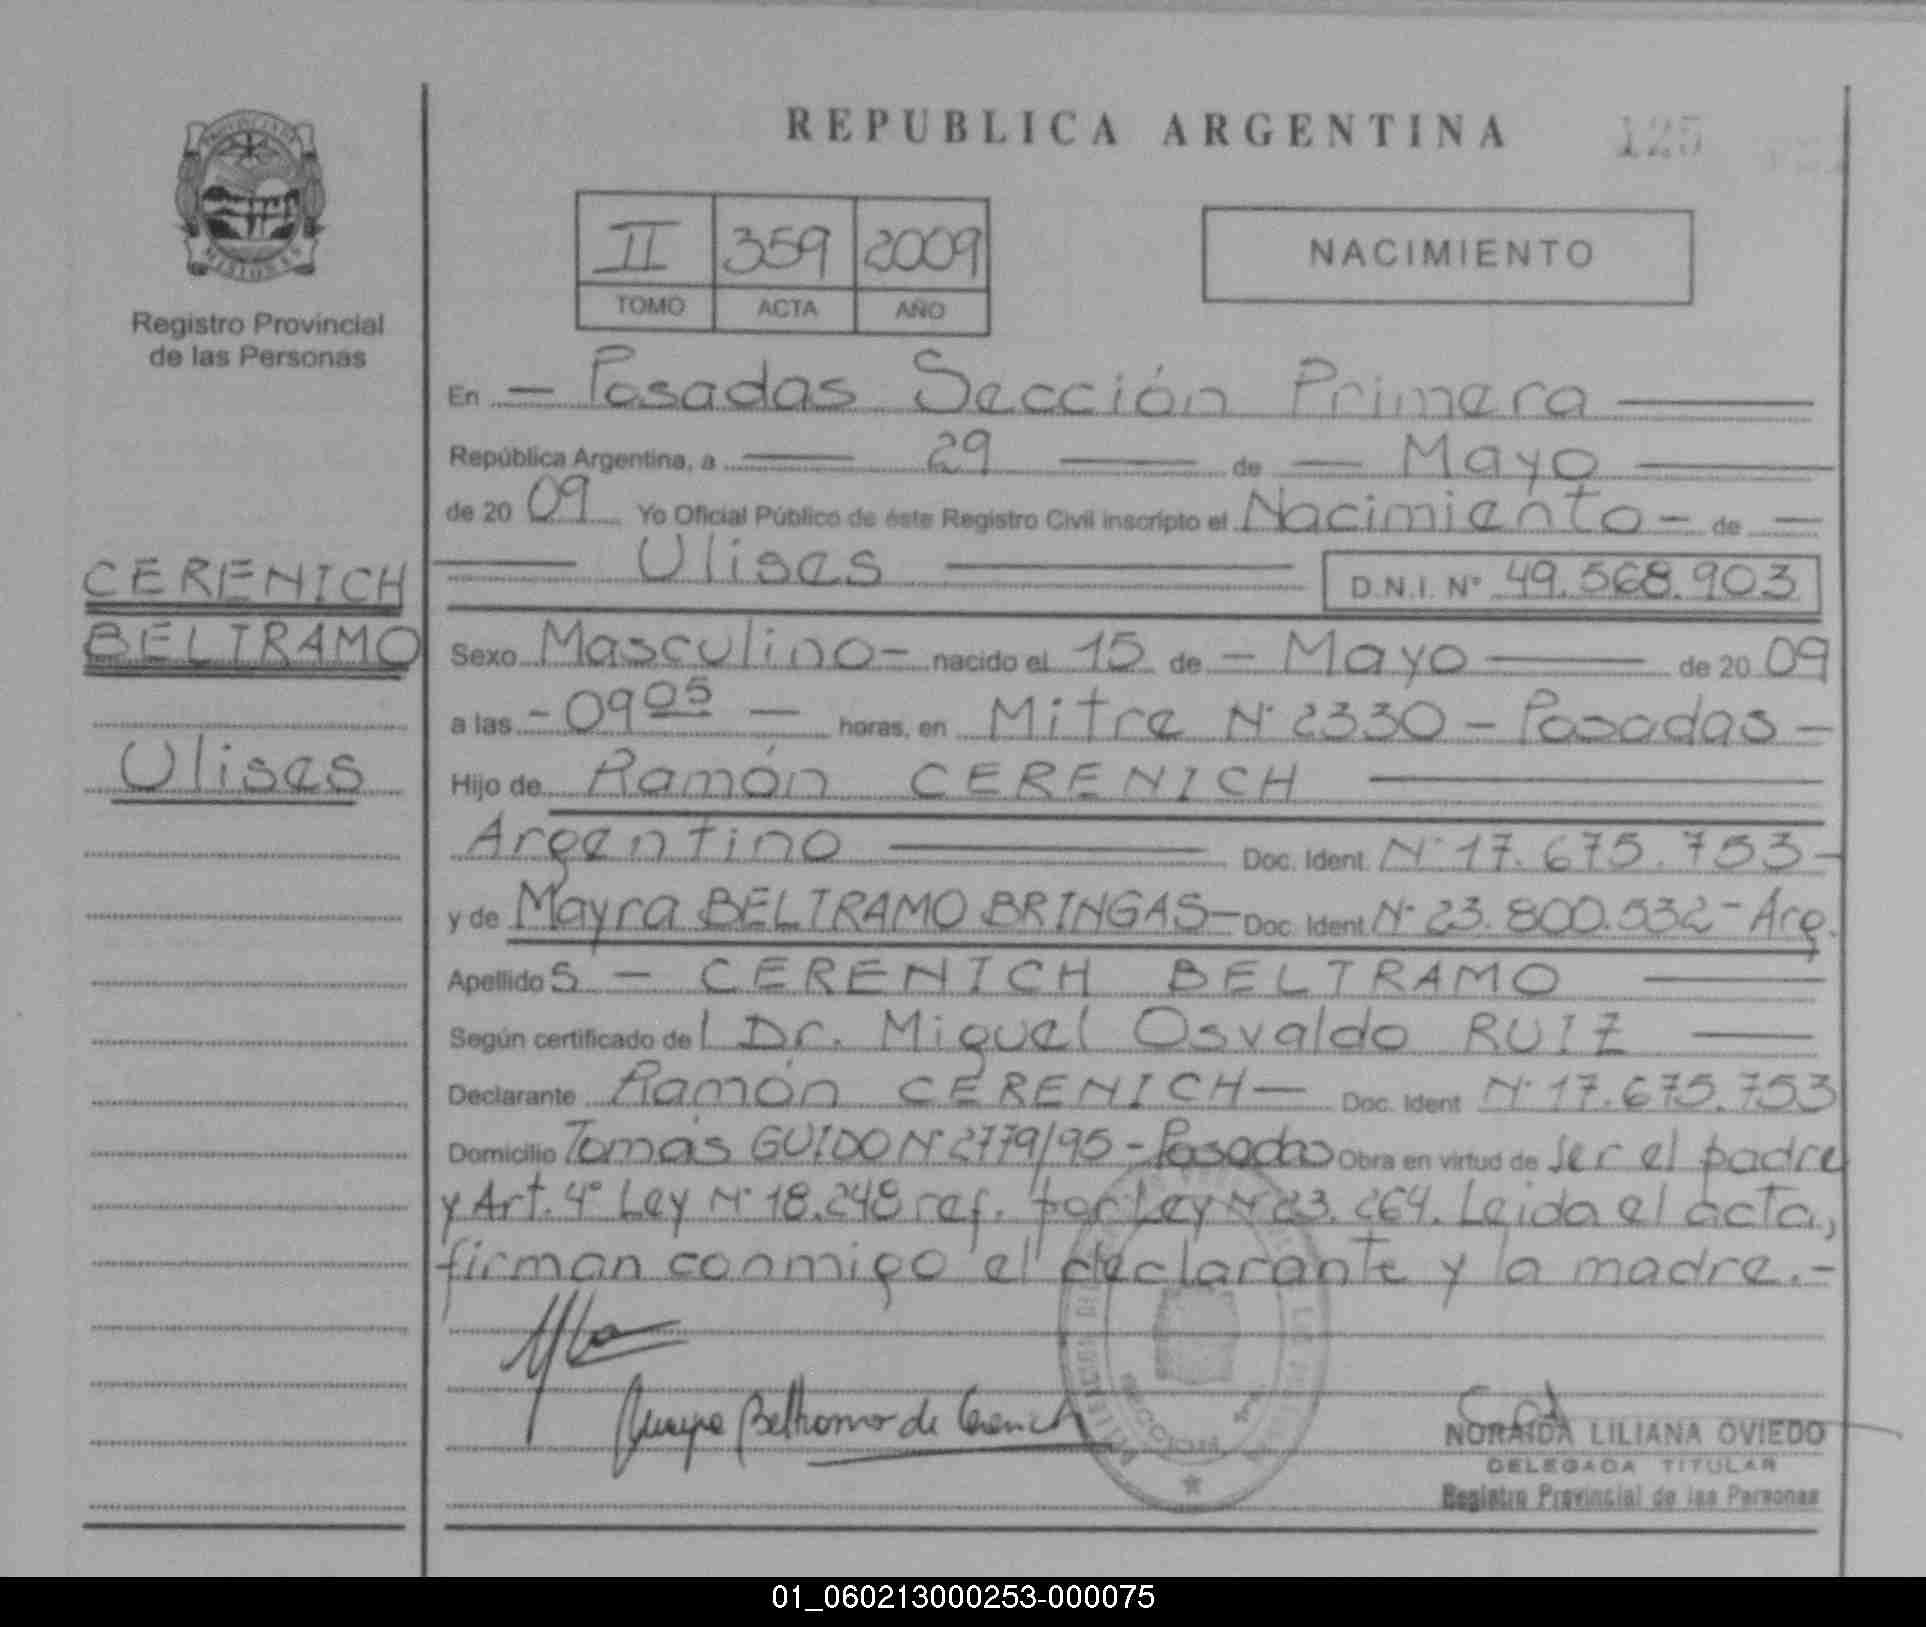 REPUBLICA ARGENTINA 125
PROVINCIA DE
MISIONES
Registro Provincial
de las Personas
II 359 2009
TOMO ACTA AÑO
NACIMIENTO
En - Posadas Sección Primera
República Argentina, a 29 de - Mayo
de 20 09 Yo Oficial Público de éste Registro Civil inscripto el Nacimiento - de -
Ulises D.N.I. Nº 49.568.903
CERENICH
BELTRAMO
Ulises
Sexo Masculino - nacido el 15 de - Mayo de 20 09
a las - 09 05 - horas, en Mitre Nº 2330 - Posadas -
Hijo de Ramón CERENICH
Argentino Doc. Ident. Nº 17.675.753 -
y de Mayra BELTRAMO BRINGAS - Doc. Ident. Nº 23.800.532 - Arg.
Apellido s - CERENICH BELTRAMO
Según certificado de l Dr. Miguel Osvaldo RUIZ
Declarante Ramón CERENICH - Doc. Ident Nº 17.675.753
Domicilio Tomás GUIDO Nº 2779/95 - Posadas Obra en virtud de ser el padre
y Art. 4º Ley Nº 18.248 ref. por Ley Nº 23.264. Leida el acta,
firman conmigo el declarante y la madre. -
Beltramo de Cerenich
NORAIDA LILIANA OVIEDO
DELEGADA TITULAR
Registro Provincial de las Personas
01_060213000253-000075